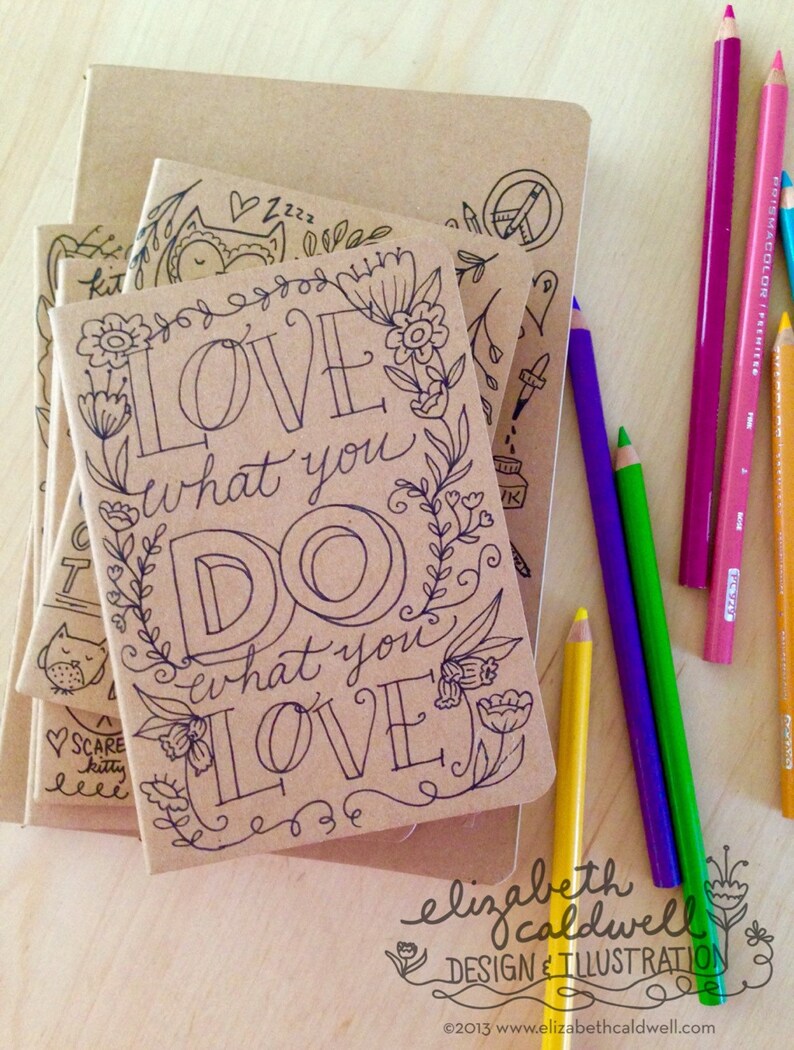 Zzzz
kit
LOVE
what you
DO
what you
LOVE
O
T
SCARE
kitty
PRISMACOLOR / PREMIER
PINK
ROSE
PC929
elizabeth
caldwell
DESIGN & ILLUSTRATION
©2013 www.elizabethcaldwell.com